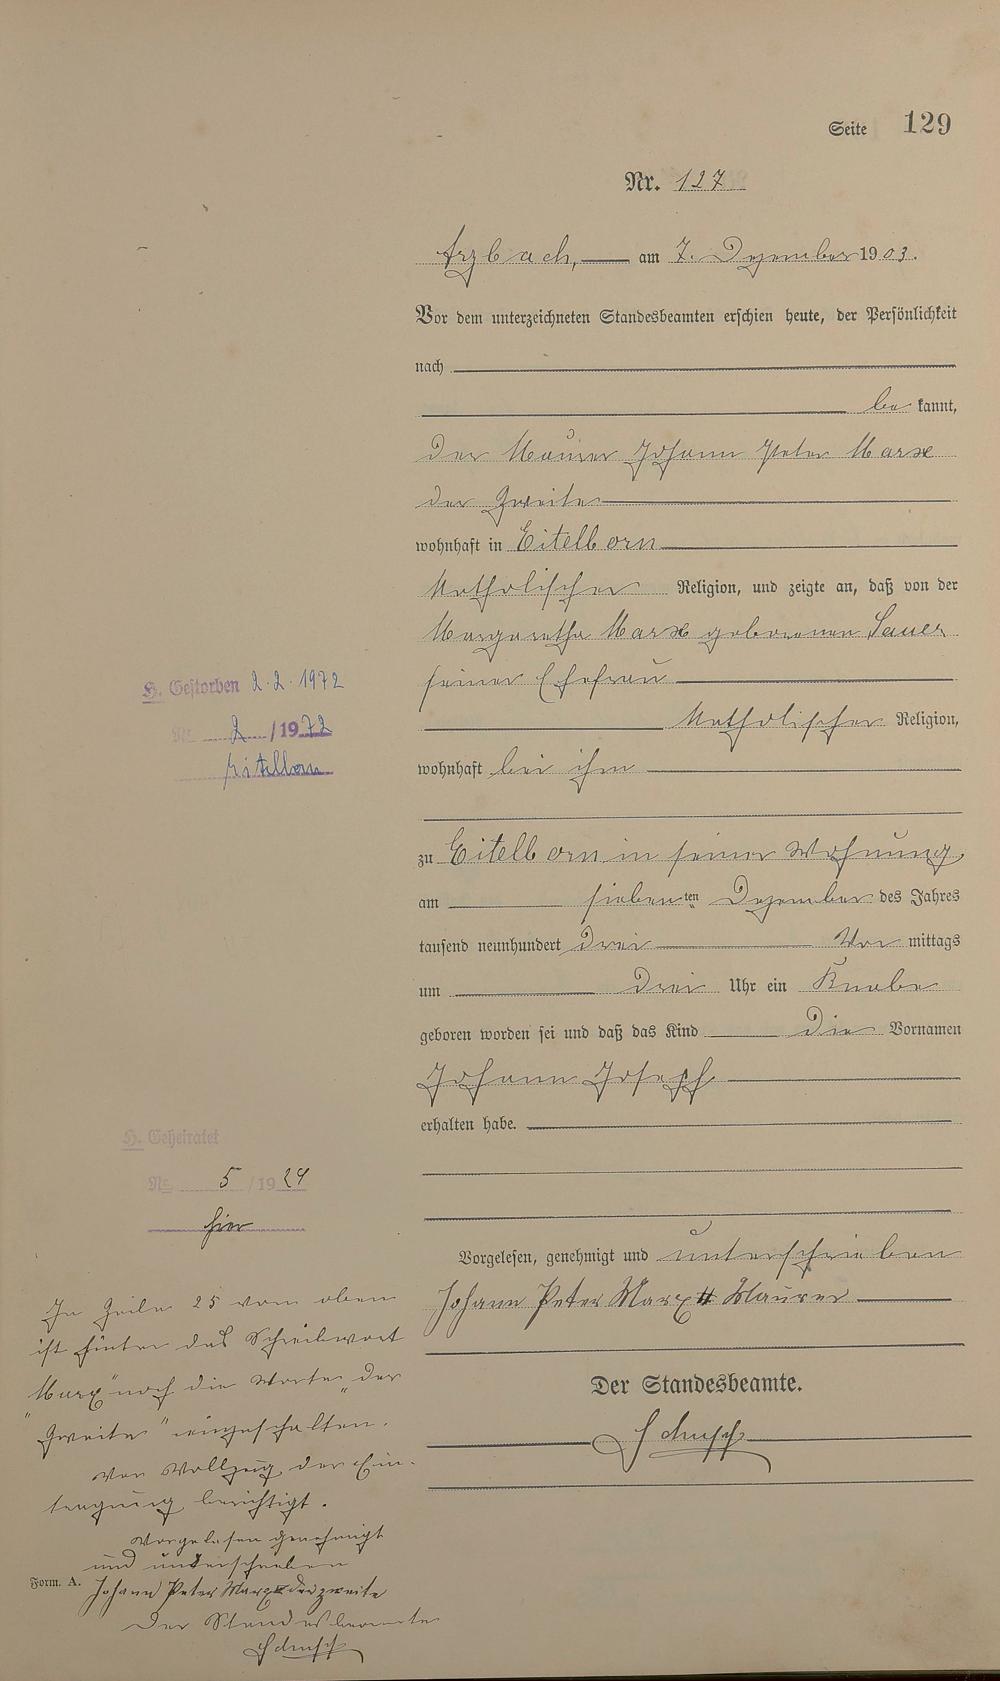 Seite 129
Nr. 127
Arzbach, am 7. Dezember 1903.
Vor dem unterzeichneten Standesbeamten erschien heute, der Persönlichkeit
nach
be kannt,
der Maurer Johann Peter Marx
der Zweite
wohnhaft in Eitelborn
katholischer Religion, und zeigte an, daß von der
Margaretha Marx geborenen Sauer
seiner Ehefrau
katholischer Religion,
wohnhaft bei ihm
zu Eitelborn in seiner Wohnung
am siebenten Dezember des Jahres
tausend neunhundert drei Vor mittags
um drei Uhr ein Knabe
geboren worden sei und daß das Kind die Vornamen
Johann Joseph
erhalten habe.
Vorgelesen, genehmigt und unterschrieben
Johann Peter Marx II Maurer
Der Standesbeamte.
H. Gestorben 2.2.1972
Nr. 2/1972
Eitelborn
H. Geheiratet
Nr. 5/1924
hier
In Zeile 25 von oben
ist hinter das Schreibwort
"Marx" noch die Worte "der
Zweite" eingeschalten.
Vor Vollzug der Ein-
tragung berichtigt.
Vorgelesen genehmigt
und unterschrieben
Form. A.
Johann Peter Marx der zweite
Der Standesbeamte